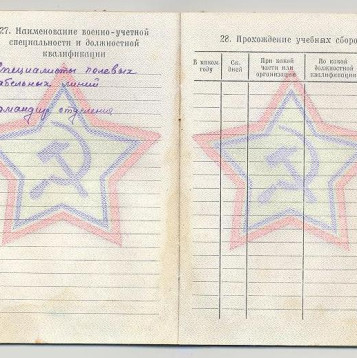 27. Наименование военно-учетной
специальности и должностной
квалификации
специалисты полевых
кабельных линий
командир отделения
28. Прохождение учебных сборо
В каком
году
Ск.
дней
При какой
части или
организации
По какой
должностной
квалификации